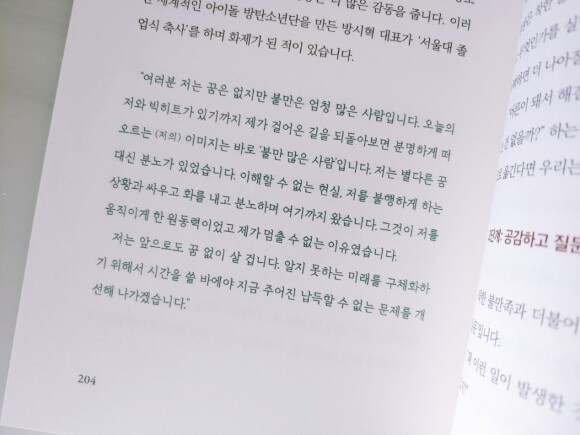 은 더 많은 감동을 줍니다. 이러
한 세계적인 아이돌 방탄소년단을 만든 방시혁 대표가 '서울대 졸
업식 축사'를 하며 화제가 된 적이 있습니다.
"여러분 저는 꿈은 없지만 불만은 엄청 많은 사람입니다. 오늘의
저와 빅히트가 있기까지 제가 걸어온 길을 되돌아보면 분명하게 떠
오르는 (저의) 이미지는 바로 '불만 많은 사람'입니다. 저는 별다른 꿈
대신 분노가 있었습니다. 이해할 수 없는 현실, 저를 불행하게 하는
상황과 싸우고 화를 내고 분노하며 여기까지 왔습니다. 그것이 저를
움직이게 한 원동력이었고 제가 멈출 수 없는 이유였습니다.
저는 앞으로도 꿈 없이 살 겁니다. 알지 못하는 미래를 구체화하
기 위해서 시간을 쓸 바에야 지금 주어진 납득할 수 없는 문제를 개
선해 나가겠습니다."
204
무엇인가를 실
하면 더 나아
어른이 돼서 해결
없을까?" 하는
옮긴다면 우리는
공감하고 질문
불만족과 더불어
입니다.
이런 일이 발생한